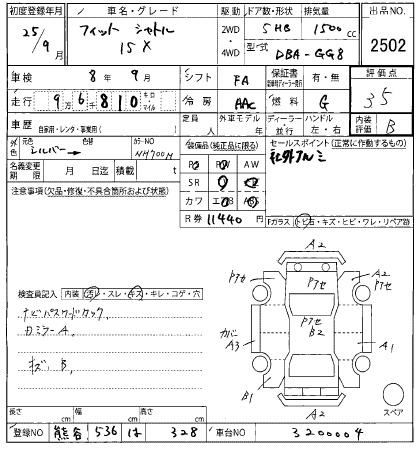 初度登録年月 車名・グレード 駆動 ドア数・形状 排気量 出品NO.
25/9月 フィット シャトル 15X 2WD 5HB 1500cc 2502
4WD 型式 DBA-GG8
車検 8年 9月 シフト FA 保証書 有・無 評価点
走行 9万6千810 キロ・マイル 冷房 AAC 燃料 G 35
車歴 自家用・レンタ・事業用( ) 定員 人 外車モデル 年 ディーラー 並行 ハンドル 左・右 内装評価 B
外色 元色 シルバー 色替 カラーNO NH700M 装備品(純正品に限る) セールスポイント(正常に作動するもの)
社外アルミ
名義変更期限 月 日迄 積載 t PS PW AW
SR
注意事項(欠品・修復・不具合箇所および状態) カワ エアB
R券 11440 円
Fガラス トビ石・キズ・ヒビ・ワレ・リペア跡
検査員記入 内装 汚レ・スレ・キズ・キレ・コゲ・穴
ナビパスワードロック
ロミラーA
キズ、B
A2
Pアセ Pアセ A2 Pアセ
Pアセ B2
カバ A3 A1
B1
A2
スペア
長さ cm 幅 cm 高さ cm
登録NO 熊谷 536 は 328 車台NO 3200004